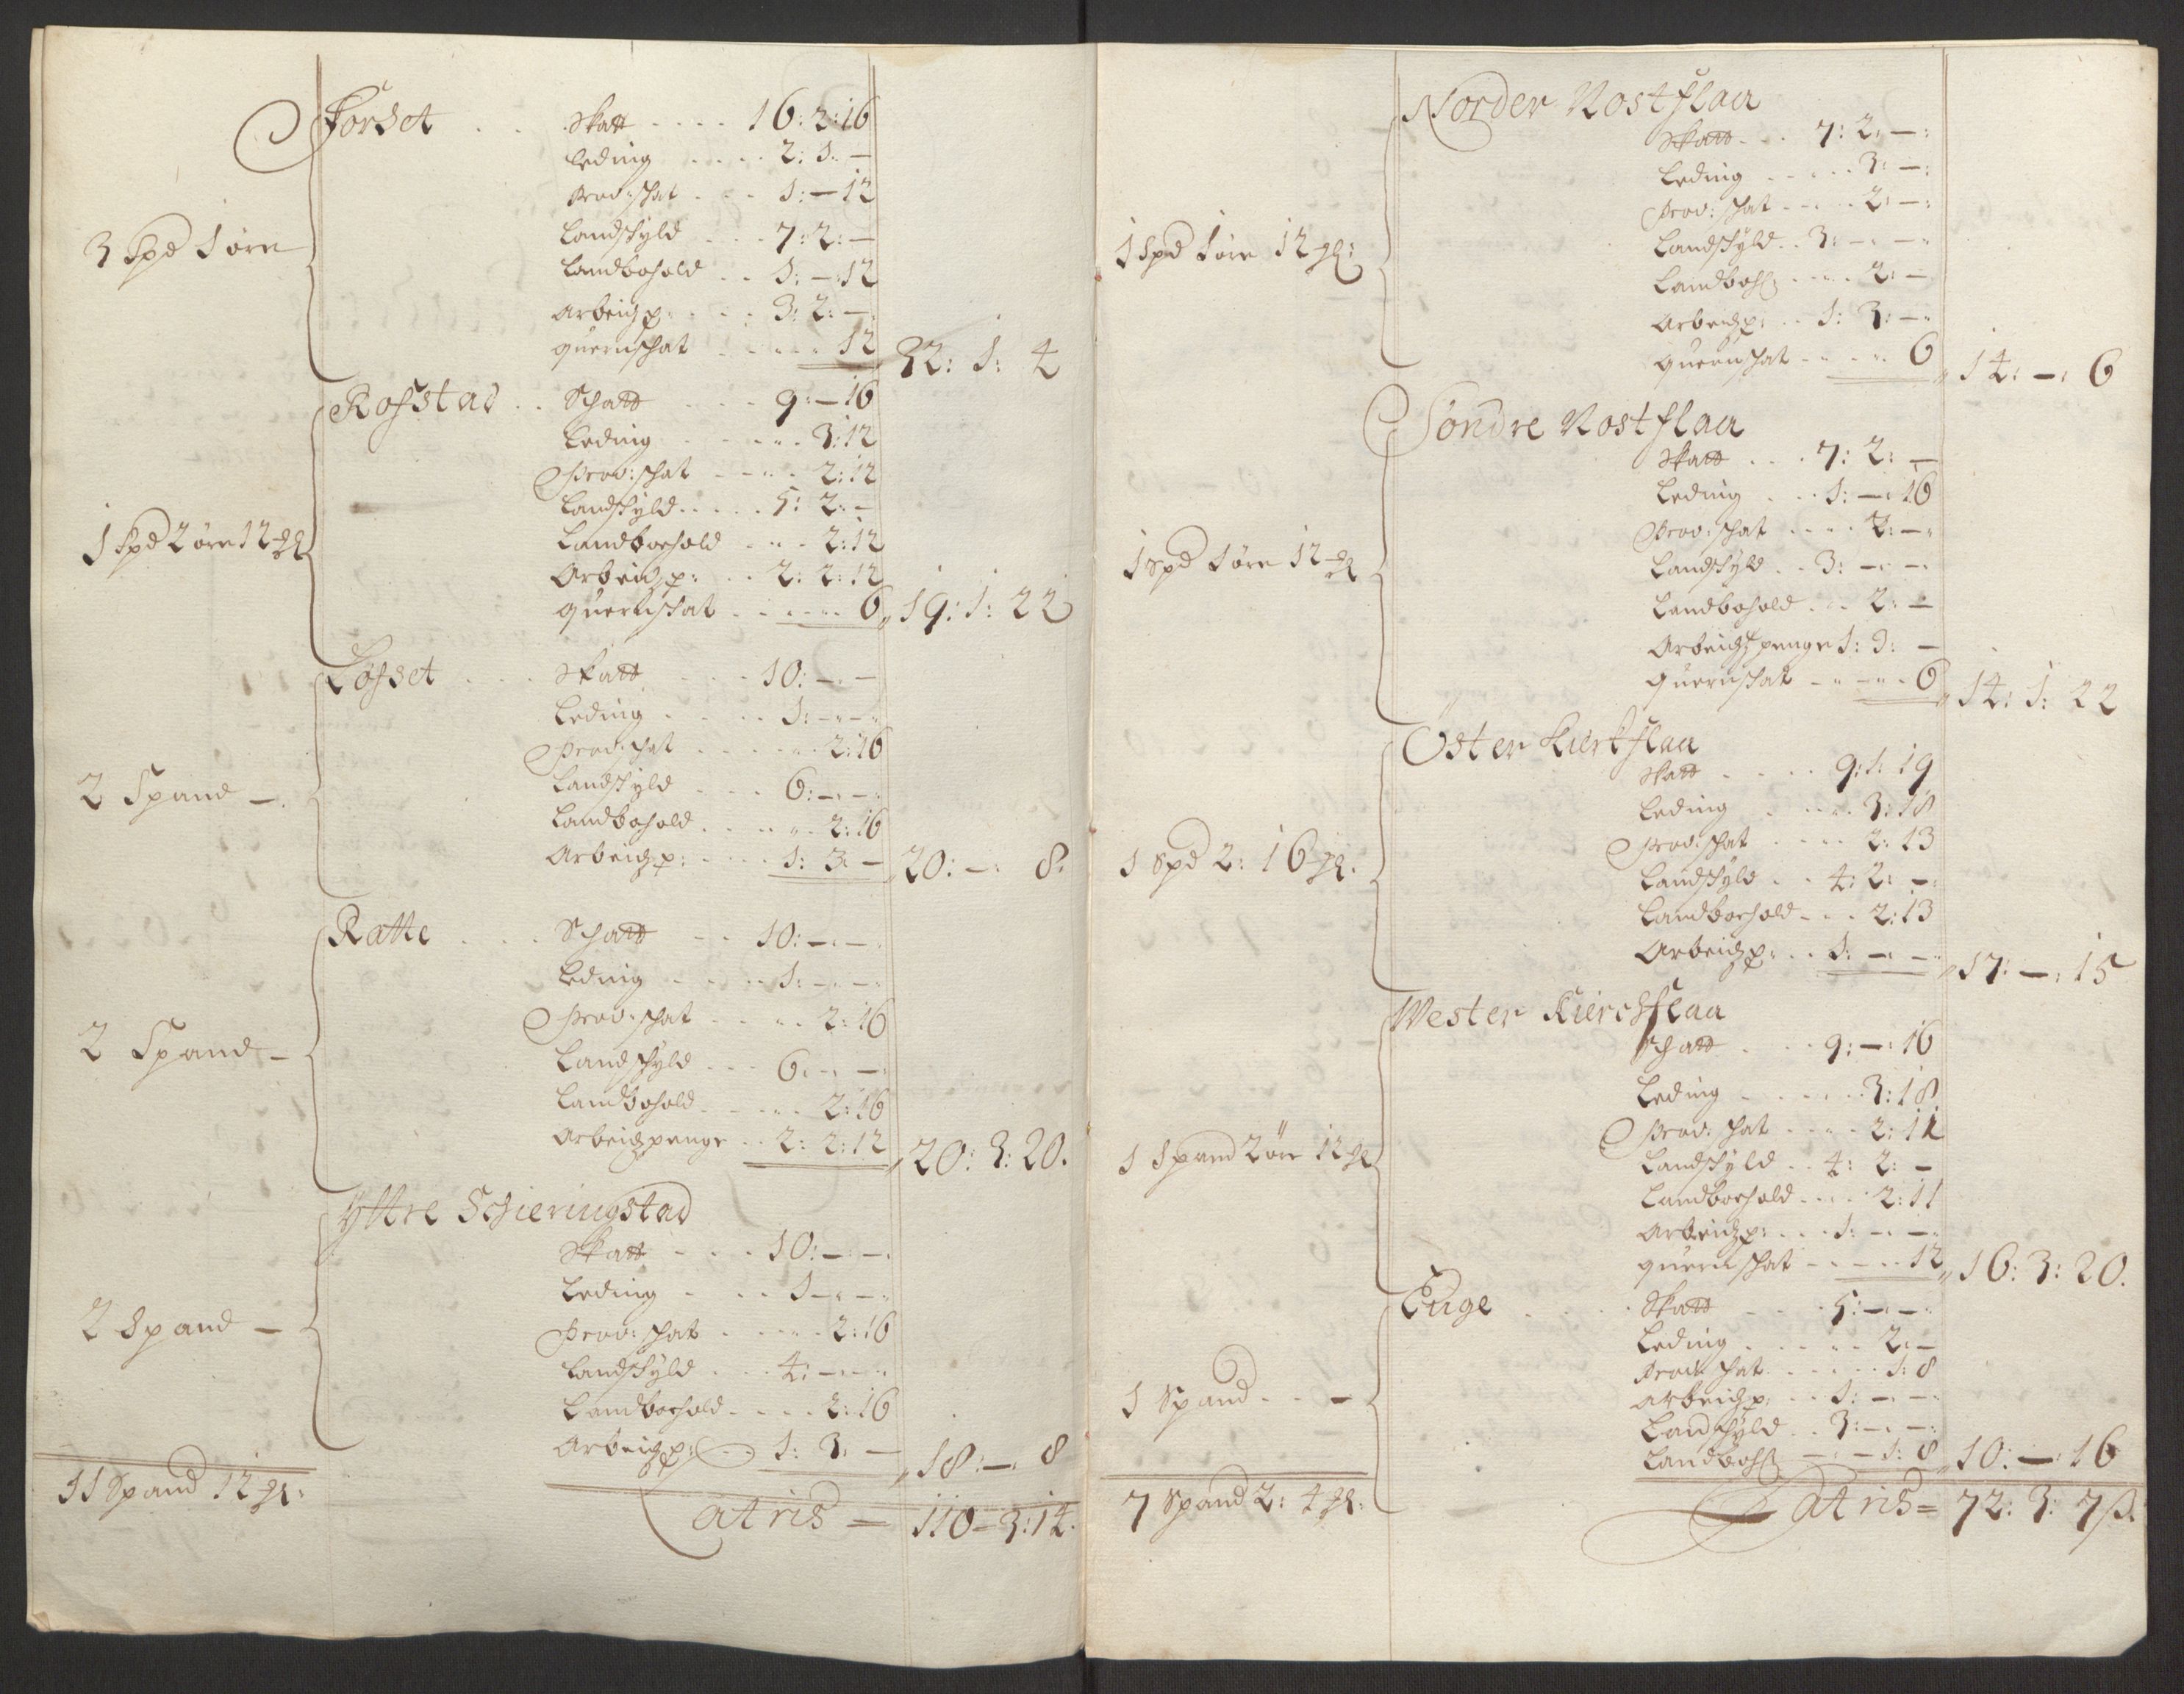 Forset . . Skatt - - - - 16: 2: 16
Leding . . . . 2: 1: —
Prov: schat . . . 1: — 12
3 Spd 1 øre Landschyld . . . 7: 2: —
Landbohold . . 1: —: 12
Arbeidzp: . . . 3: 2: —:
quernschat - - - - 12 32: 1: 4
Rosstad . . Schatt - - - 9: — 16
Leding - - - - 3: 12
Prov: schat - - - - 2: 12
Landschyld . . . . . 5: 2: —
1 Spd 2 øre 12 gl Landboehold . . . 2: 12
Arbeidzp: . . 2: 2: 12
quernschat - - - - - 6 19: 1: 22
Losset . . . Skatt - - - 10: —: —
Leding . . . . 1: —: —:
Prov: schat . . . . . 2: 16
2 Spand —. Landschyld . . . 6: —: —:
Landbohold . . . . . 2: 16
Arbeidzp: . . . . 1: 3: — 20: —: 8.
Ratte . . . Schatt - - 10: —: —:
Leding . . . . 1: —: —:
Prov: schat . . . . 2: 16
2 Spand — Landschyld . . . 6: —: —:
Landbohold . . . . . 2: 16
Arbeidzpenge . . 2: 2: 12 20: 3: 20.
Yttre Schieringstad
Skatt - - - 10: —: —:
Leding . . . 1 —: —:
2 Spand — Prov: schat . . . . . 2: 16
Landschyld . . . 4: —: —:
Landboehold . . . . 2: 16
Arbeidzp: . . 1: 3: — 18: —: 8
11 Spand 12 gl: Latris = 110 — 3: 14.
Norder Rostflaa
Skatt - - . 7: 2: —:
Leding - - - - 3: —:
Prov: schat - - - - 2: —:
1 Spd 1 øre 12 gl: Landschyld . . 3: —: —:
Landboh: - - - - 2: —
Arbeidzp: . . 1: 3: —:
quernschat - - - - 6 14: —: 6
Søndre Rostflaa
Skatt . . . 7: 2: —
Leding . . . 1: —: 16
Prov: schat - - - - 2: —:
1 Spd 1 øre 12 gl Landschyld . . 3: —: —:
Landbohold . . . 2: —
Arbeidzpenge 1: 3: —
quernschat - - - - - 6 14: 1: 22
Øster Kierkflaa
Skatt . . . . 9: 1: 19
Leding . . . . 3: 18
Prov: schat . . . . 2: 13
1 Spd 2: 16 gl. Landschyld . . 4: 2: —:
Landboehold - . . 2: 13
Arbeidzp: . . 1: —: —: 17: —: 15
Wester Kierchflaa
Schatt . . . 9: —: 16
Leding - - - - - 3: 18
Prov: schat - - - - 2: 11
1 Spand 2 øre 12 gl Landschyld . . 4: 2: —
Landboehold . . . . 2: 11
Arbeidzp: . . . 1: —: —:
quernschat - - - - - 12 16: 3: 20.
Euge . . . Skatt - - - 5: —: —:
Leding . . . . . 2: —
Prov: schat . . . . . 1: 8
1 Spand . . — Arbeidzp: . . 1: —: —:
Landschyld . . 3: —: —:
Landboh: —: — 1: 8 10: —: 16
7 Spand 2: 4 gl: Latris = 72: 3: 7 ß.